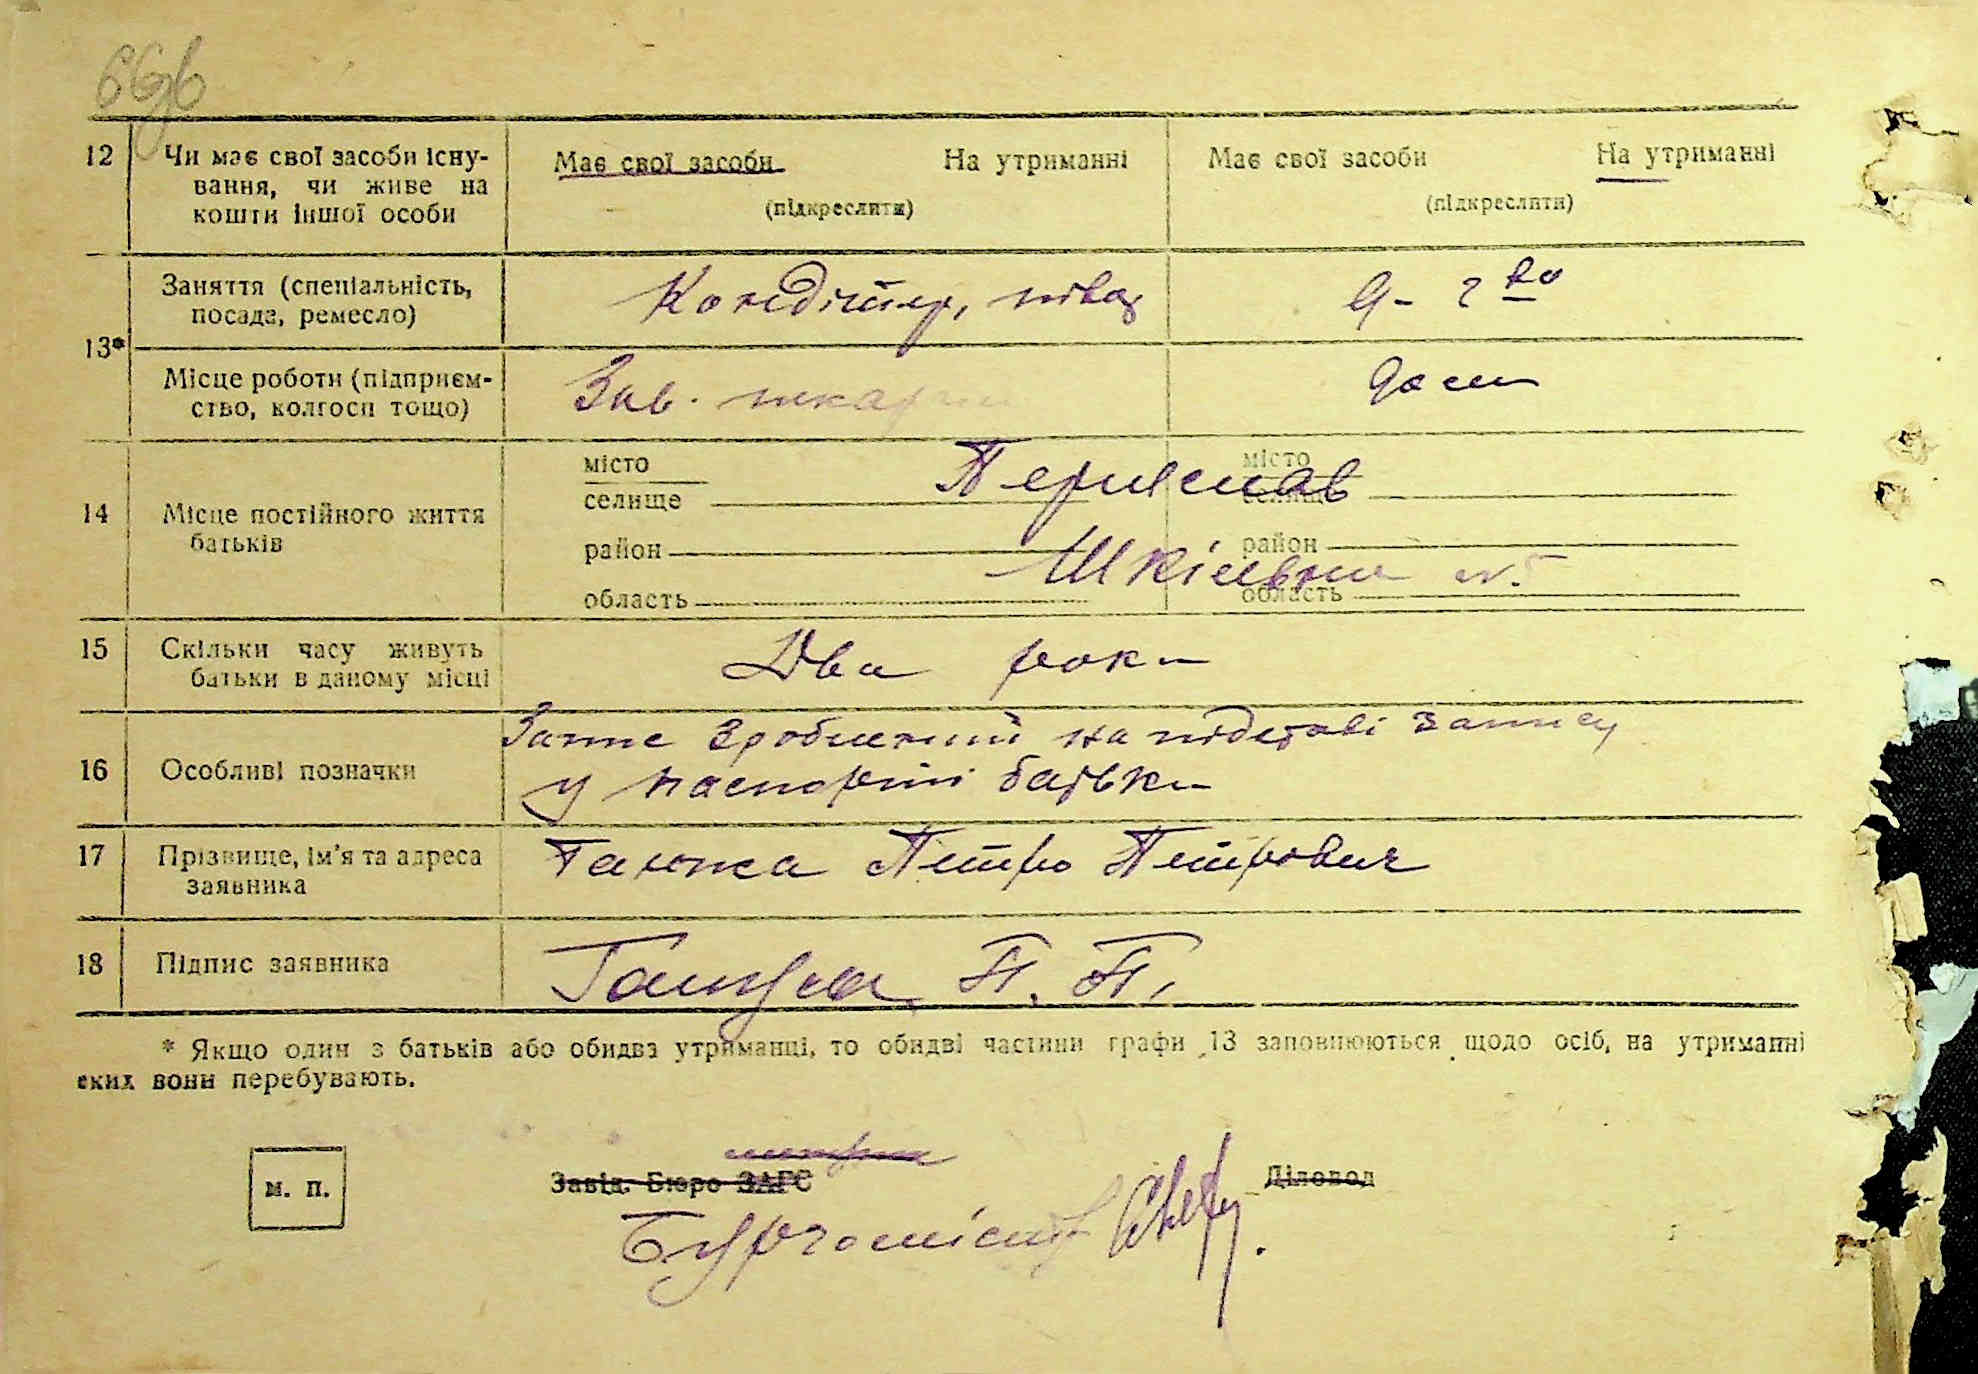 12 Чи має свої засоби існу-
вання, чи живе на
кошти іншої особи
Має свої засоби На утриманні
(підкреслити)
Має свої засоби На утриманні
(підкреслити)
13*
Заняття (спеціальність,
посада, ремесло)
Кондітер,
Д- г во
Місце роботи (підприєм-
ство, колгосп тощо)
Зав. пекарні
14 Місце постійного життя
батьків
місто
селище
район
область
місто
селище
район
область
Переяслав
Шкільна
15 Скільки часу живуть
батьки в даному місці
Два роки
16 Особливі позначки
Запис зроблений на підставі запису
у паспорті батька
17 Прізвище, ім'я та адреса
заявника
Ганжа Петро Петрович
18 Підпис заявника
Ганжа П. П.
* Якщо один з батьків або обидва утриманці, то обидві частини графи 13 заповнюються щодо осіб, на утриманні
яких вони перебувають.
м. п.
Завід. Бюро ЗАГС
Діловод
Бургомістр